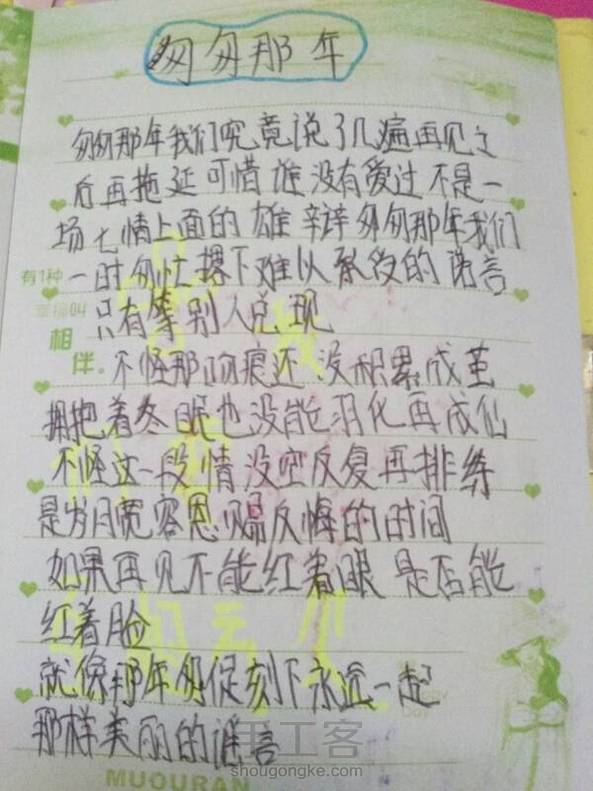 匆匆那年
匆匆那年我们究竟说了几遍再见之
后再拖延可惜谁没有爱过不是一
场七情上面的雄辩匆匆那年我们
一时匆忙撂下难以承受的诺言
有1种
幸福04
只有等别人兑现
相
伴。
不怪那吻痕还没积累成茧
拥抱着冬眠也没能羽化再成仙
不怪这一段情没空反复再排练
是岁月宽容恩赐反悔的时间
如果再见不能红着眼是否能
红着脸
就像那年匆促刻下永远一起
那样美丽的谣言
手工客
shougongke.com
MUOURAN